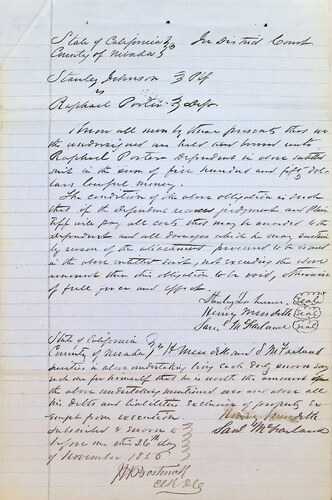 State of California } In District Court
County of Nevada }
Stanley Johnson } Plf
vs
Raphael Porter } Deft
Know all men by these presents that we
the undersigned are held and bound unto
Raphael Porter Defendent in above entitled
suit in the sum of five hundred and fifty dol
lars lawful money.
The condition of the above obligation is such
that if the defendent recover judgment said Plain
tiff will pay all costs that may be awarded to the
defendent and all damages which he may sustain
by reason of the attachment procured to be issued
in the above entitled suit, not exceeding the above
amount then this obligation to be void, otherwise
of full force and effect.
Stanley Johnson (seal)
Henry Meredith (seal)
Saml McFarland (seal)
State of California
County of Nevada } H Meredith and S McFarland
sureties in above undertaking being each duly sworn say
each one for himself that he is worth the amount in
the above undertaking mentioned over and above all
his debts and liabilities exclusive of property ex
empt from execution Henry Meredith
subscribed & sworn to Saml McFarland
before me this 26th day
of November 1856
Clk D C